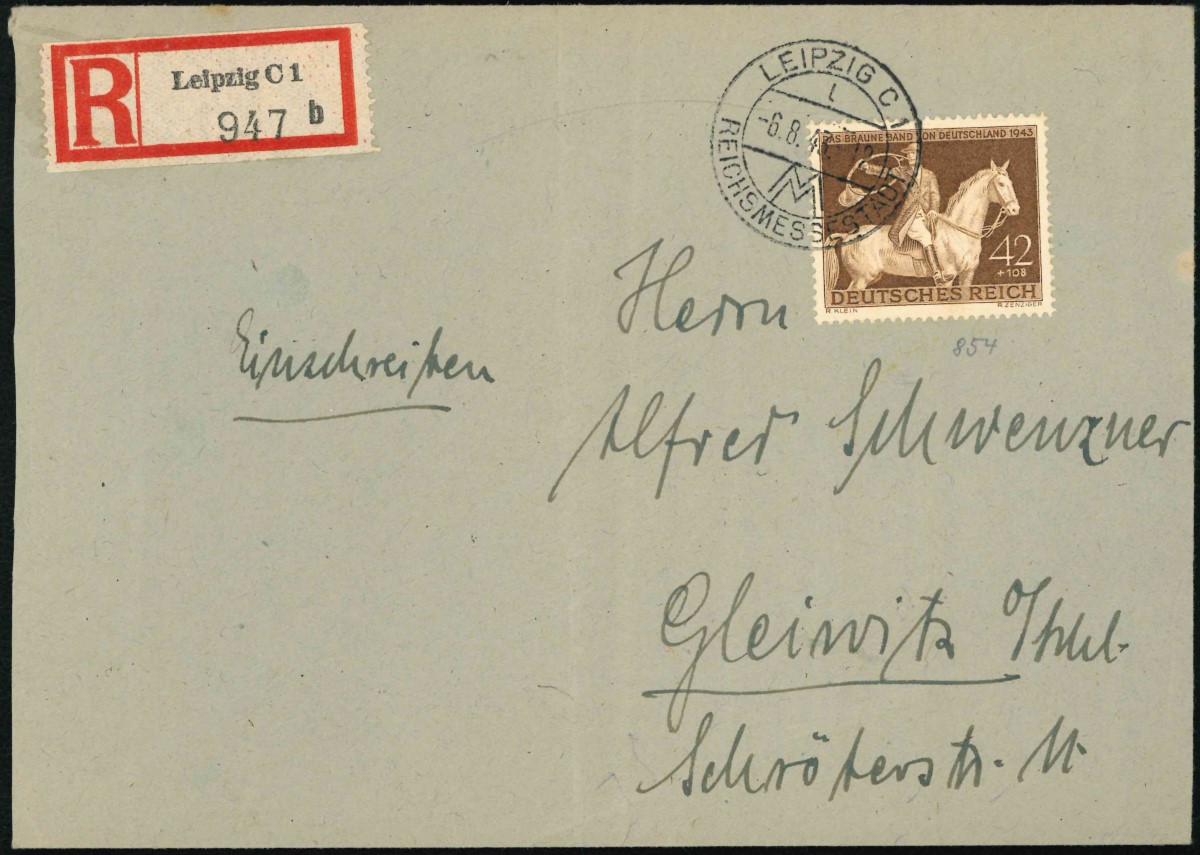 R
Leipzig C 1
947 b
LEIPZIG C 1
l
-6.8.43.-12
REICHSMESSESTADT
DAS BRAUNE BAND VON DEUTSCHLAND 1943
42
+108
DEUTSCHES REICH
R. KLEIN R. ZENZIGER
854
Einschreiben
Herrn
Alfred Schwenzner
Gleiwitz
Schröterstr. 11